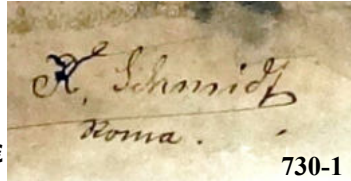 R. Schmidt
Roma.
730-1